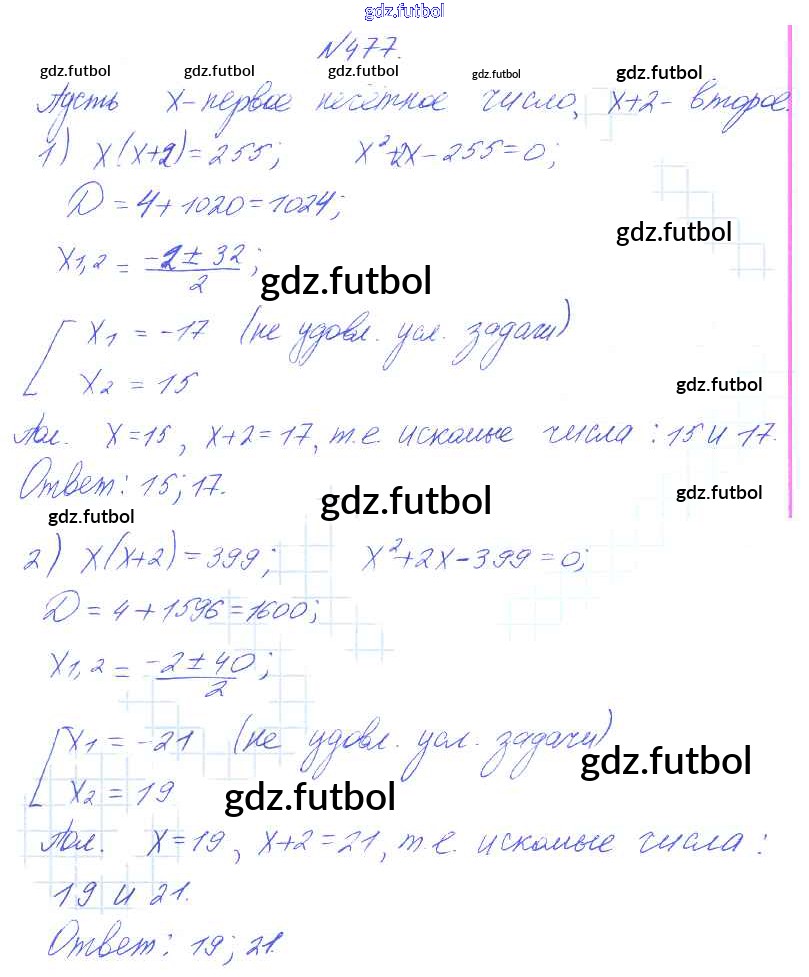 gdz.futbol
№477.
gdz.futbol gdz.futbol gdz.futbol gdz.futbol
Пусть x - первое нечётное число, x+2 - второе.
1) x(x+2)=255; x²+2x-255=0;
D=4+1020=1024;
gdz.futbol
x1,2 = (-2±32)/2;
gdz.futbol
x1 = -17 (не удовл. усл. задачи)
x2 = 15
gdz.futbol
x=15, x+2=17, т.е. искомые числа: 15 и 17.
Ответ: 15; 17.
gdz.futbol gdz.futbol gdz.futbol
2) x(x+2)=399; x²+2x-399=0;
D=4+1596=1600;
x1,2 = (-2±40)/2;
x1 = -21 (не удовл. усл. задачи)
gdz.futbol
x2 = 19
gdz.futbol
x=19, x+2=21, т.е. искомые числа:
19 и 21.
Ответ: 19; 21.